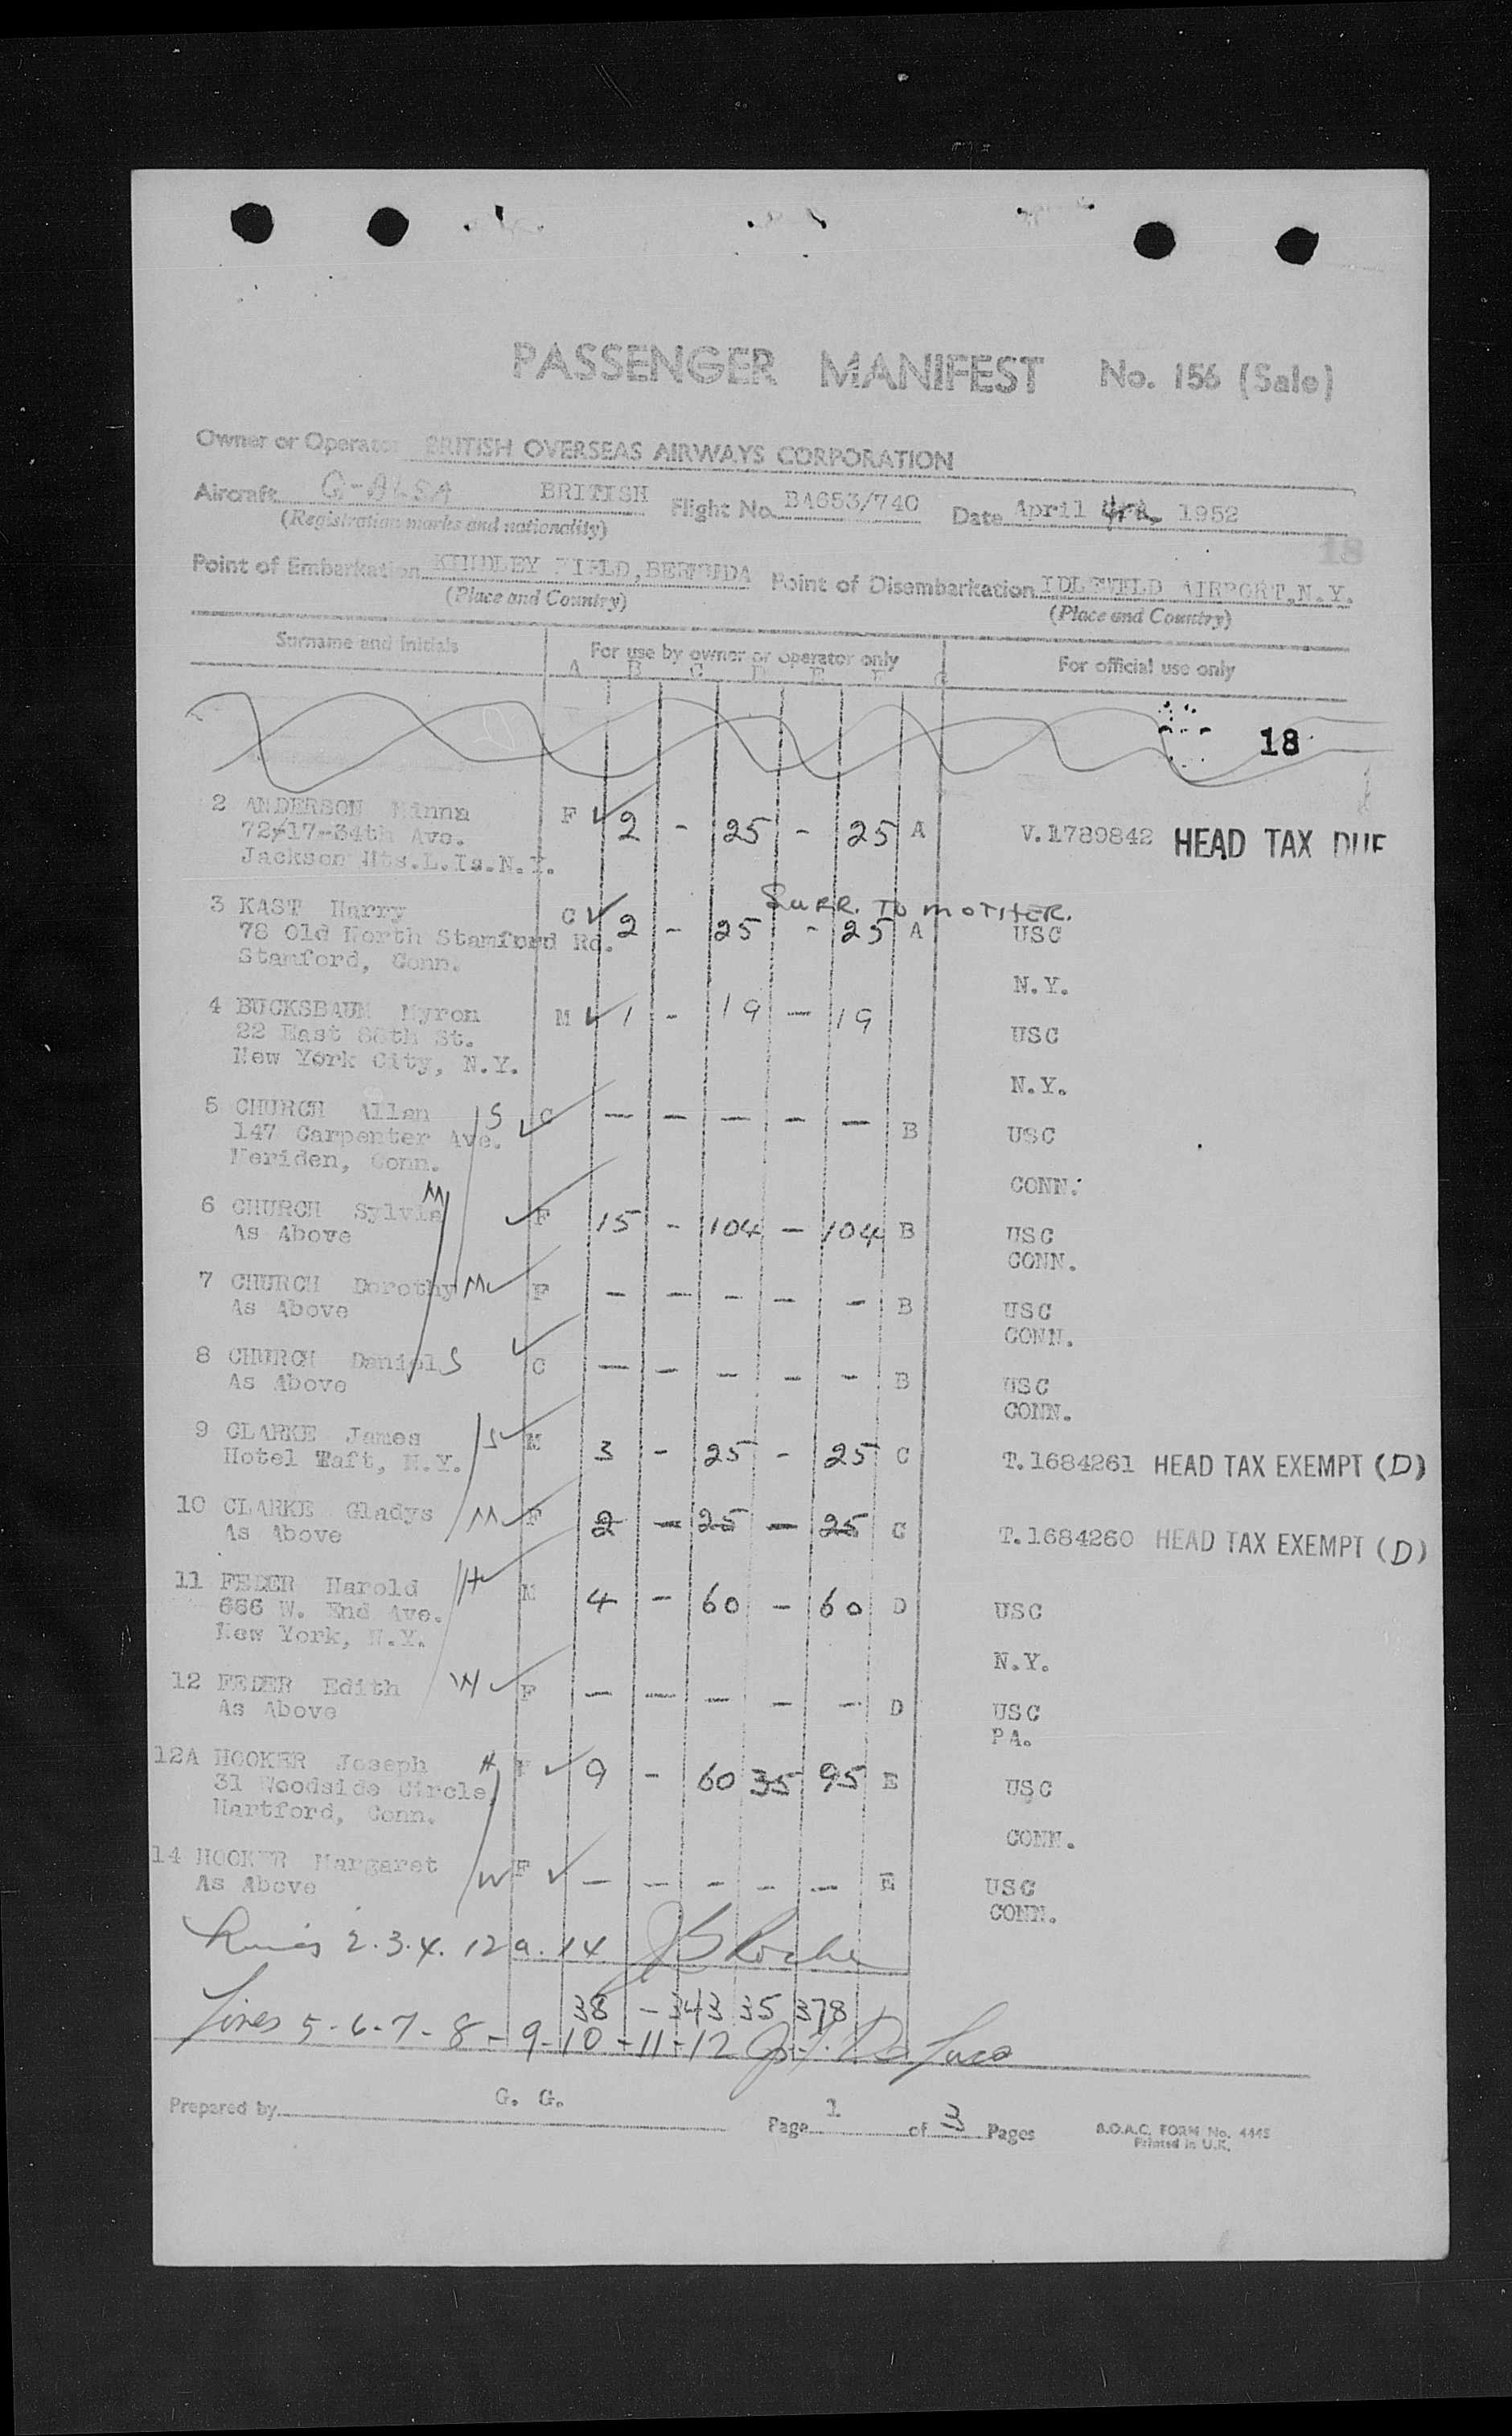 PASSENGER MANIFEST No. 156 (Sale)
Owner or Operator BRITISH OVERSEAS AIRWAYS CORPORATION
Aircraft G-ALSA BRITISH Flight No. BA653/740 Date April 4th, 1952
(Registration marks and nationality)
18
Point of Embarkation KINDLEY FIELD, BERMUDA Point of Disembarkation IDLEWILD AIRPORT, N.Y.
(Place and Country) (Place and Country)
Surname and Initials For use by owner or operator only For official use only
A B C D E F G
18
2 ANDERSON Minna F 2 - 25 - 25 A V.1789842 HEAD TAX DUE
72-17-34th Ave.
Jackson Hts.L.Is.N.Y.
SURR. TO MOTHER.
3 KAST Harry C 2 - 25 - 25 A USC
78 Old North Stamford Rd.
Stamford, Conn.
N.Y.
4 BUCKSBAUM Myron M 1 - 19 - 19 USC
22 East 88th St.
New York City, N.Y.
N.Y.
5 CHURCH Allan S C - - - - - B USC
147 Carpenter Ave.
Meriden, Conn.
CONN.
6 CHURCH Sylvia M F 15 - 104 - 104 B USC
As Above CONN.
7 CHURCH Dorothy M F - - - - - B USC
As Above CONN.
8 CHURCH Daniel S C - - - - - B USC
As Above CONN.
9 CLARKE James S M 3 - 25 - 25 C T.1684261 HEAD TAX EXEMPT (D)
Hotel Taft, N.Y.
10 CLARKE Gladys M F 2 - 25 - 25 C T.1684260 HEAD TAX EXEMPT (D)
As Above
11 FEDER Harold H M 4 - 60 - 60 D USC
666 W. End Ave.
New York, N.Y.
N.Y.
12 FEDER Edith W F - - - - - D USC
As Above PA.
12A HOOKER Joseph H 9 - 60 35 95 E USC
31 Woodside Circle,
Hartford, Conn.
CONN.
14 HOOKER Margaret W F - - - - - E USC
As Above CONN.
2.3.4. 12a. 14
38 - 343 35 378
Lines 5-6-7-8-9-10-11-12
Prepared by G. G.
Page 1 of 3 Pages
B.O.A.C. FORM No. 4445
Printed in U.K.